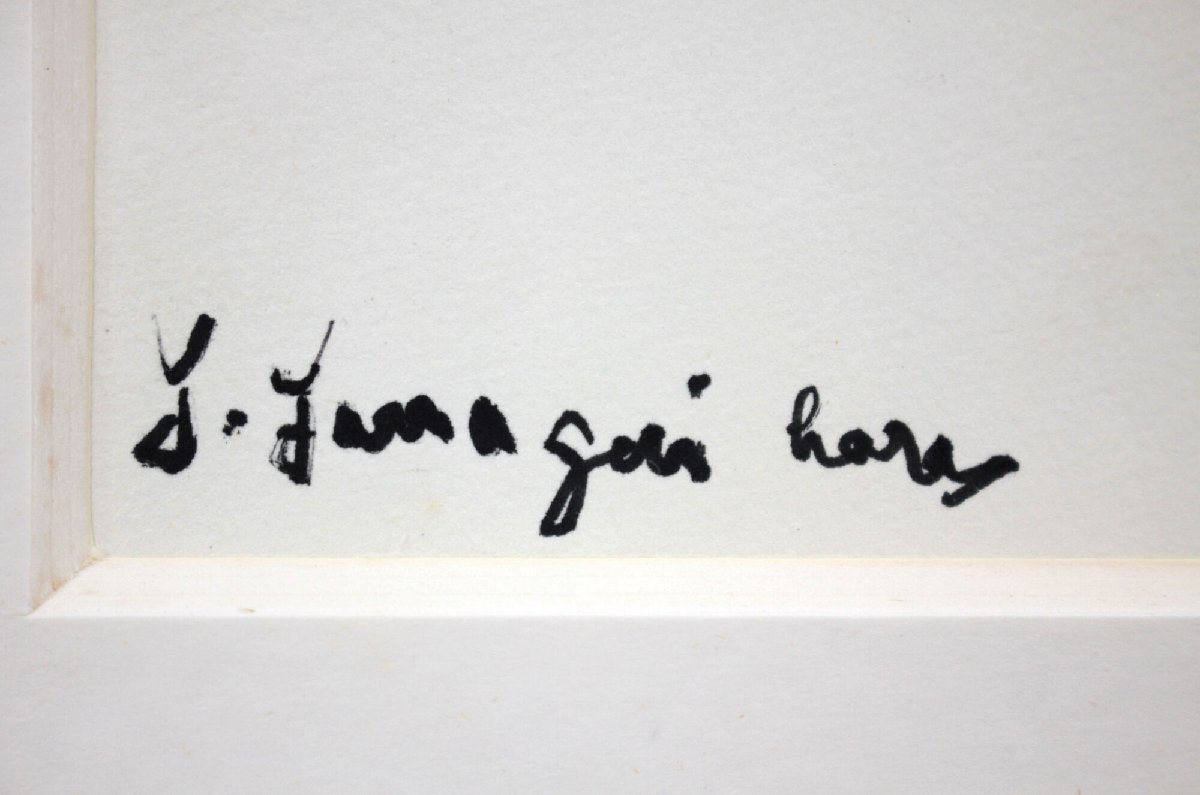 Y. Yanagi hara